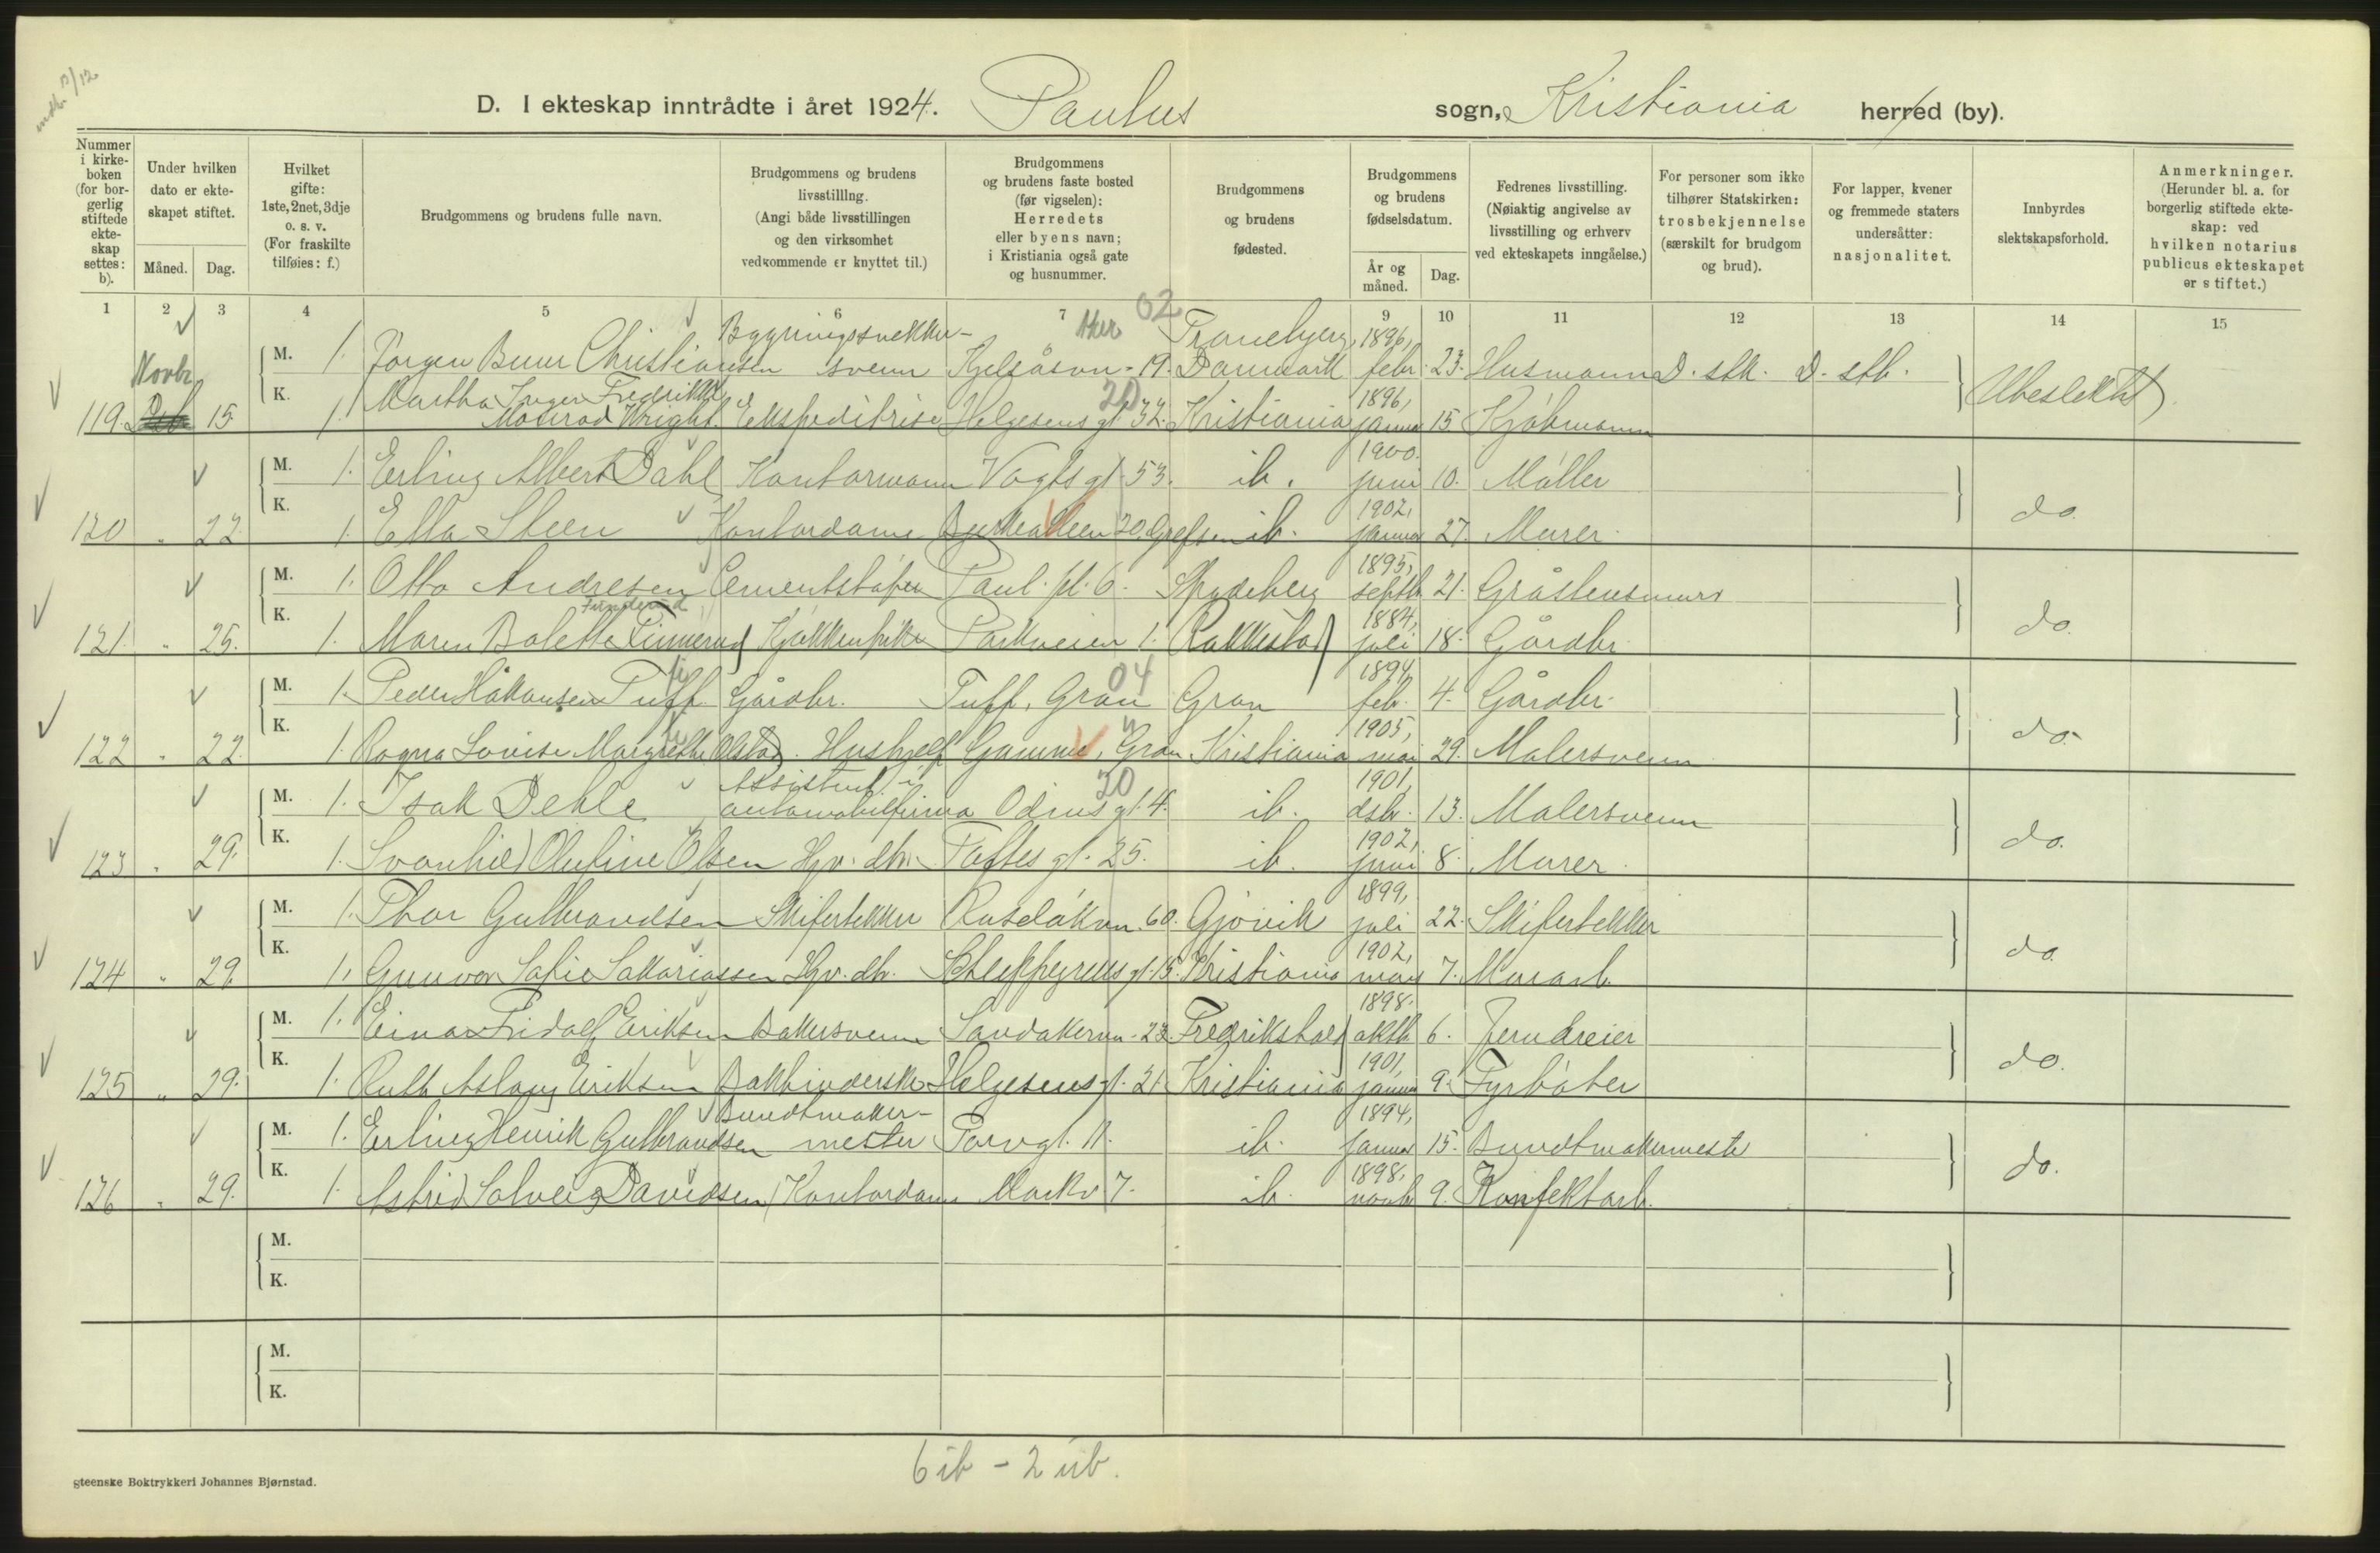 D. I ekteskap inntrådte i året 1924. Paulus sogn, Kristiania herred (by).
Nummer i kirkeboken (for borgerlig stiftede ekteskap settes: b).
Under hvilken dato er ekteskapet stiftet.
Måned. Dag.
Hvilket gifte: 1ste, 2net, 3dje o. s. v. (For fraskilte tilføies: f.)
Brudgommens og brudens fulle navn.
Brudgommens og brudens livsstilling. (Angi både livsstillingen og den virksomhet vedkommende er knyttet til.)
Brudgommens og brudens faste bosted (før vigselen): Herredets eller byens navn; i Kristiania også gate og husnummer.
Brudgommens og brudens fødested.
Brudgommens og brudens fødselsdatum.
År og måned. Dag.
Fedrenes livsstilling. (Nøiaktig angivelse av livsstilling og erhverv ved ekteskapets inngåelse.)
For personer som ikke tilhører Statskirken: trosbekjennelse (særskilt for brudgom og brud).
For lapper, kvener og fremmede staters undersåtter: nasjonalitet.
Innbyrdes slektskapsforhold.
Anmerkninger. (Herunder bl. a. for borgerlig stiftede ekteskap: ved hvilken notarius publicus ekteskapet er stiftet.)
1 2 3 4 5 6 7 9 10 11 12 13 14 15
M. 1. Jørgen Christiansen Bygningssnekkersvenn Kjelsåsvn. 19. Aker 02 Tranebjerg, Danmark 1896, febr. 23. Husmann D. stb. D. stb.
119. Novbr. 15. K. 1. Martha Inger Fredrikke Monrad Wright Ekspeditrise Helgesens gt. 32. 20 Kristiania 1896, januar 15. Kjøbmann Ubeslektet
M. 1. Erling Albert Dahl Kontormann Vogts gt. 53. ib. 1900. juni 10. Møller
120 " 22. K. 1. Ella Steen Kontordame Bjerkealleen 20, Grefsen ib. 1902, januar 27. Murer. do.
M. 1. Otto Andresen Cementstøper Paul. pl. 6. Spydeberg 1895, septbr. 21. Gråstensmurer
121. " 25. K. 1. Maren Bolette Finnerud Kjøkkenpike Parkveien 1. Rakkestad 1884, juli 18. Gårdbr. do.
M. 1. Peder Håkansen Tuff Gårdbr. Tuff, Gran 04 Gran 1894, feb. 4. Gårdbr.
122 " 22. K. 1. Ragna Lovise Margrethe Olstad. Hushjelp Gamme, Gran Kristiania 1905, mai 29. Malersvenn do.
M. 1. Isak Dehle Assistent i automobilfirma Odins gt. 4. 20 ib. 1901, dsbr. 13. Malersvenn
123 " 29. K. 1. Svanhild Olufine Olsen Hjv. dtr. Toftes gt. 25. ib. 1902, juni 8. Murer. do.
M. 1. Thor Gulbrandsen Skifertekker Ruseløkvn. 60. Gjøvik 1899, juli 22. Skifertekker
124 " 29. K. 1. Gunvor Sofie Sakariassen Hjv. dtr. Schleppegrells gt. 15. Kristiania 1902, mars 7. Murarb. do.
M. 1. Einar Fridolf Eriksen Bakersvenn Sandakervn. 23. Fredrikshald 1898. oktbr. 6. Jerndreier
125 " 29. K. 1. Ruth Aslaug Eriksen Bokbinderske Helgesens gt. 21. Kristiania 1901, januar 9. Fyrbøter do.
M. 1. Erling Henrik Gulbrandsen Bundtmakermester Torvgt. 11. ib. 1894, januar 15. Bundtmakermester
126 " 29. K. 1. Astrid Solveig Davidsen Kontordame Markv 7. ib. 1898, novbr. 9. Konfektarb. do.
M.
K.
M.
K.
6 ib - 2 uib.
steenske Boktrykkeri Johannes Bjørnstad.